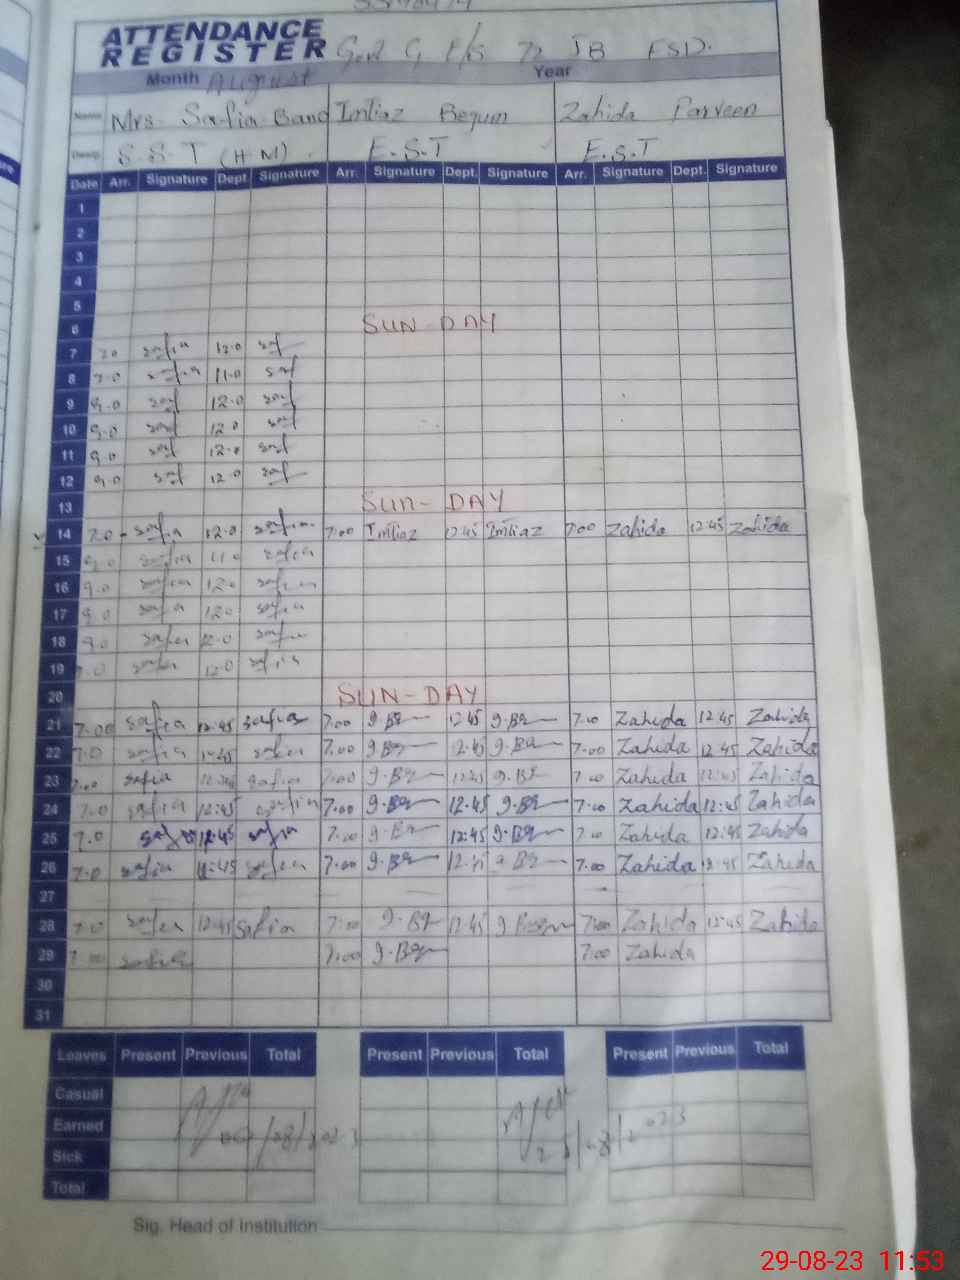 ATTENDANCE
REGISTER Govt G E/S JB FSD.
Month August Year
Name Mrs Safia Bano Imtiaz Begum Zahida Parveen
Desig. S.S.T (H.M) E.S.T E.S.T
Date Arr. Signature Dept Signature Arr. Signature Dept. Signature Arr. Signature Dept. Signature
1
2
3
4
5
6 SUN-DAY
7 7.0 safia 12.0 saf
8 7.0 safia 11.0 saf
9 9.0 saf 12.0 saf
10 9.0 saf 12.0 saf
11 9.0 saf 12.0 saf
12 9.0 saf 12.0 saf
13 SUN-DAY
14 7.0 safia 12.0 safia 7:00 Imtiaz 12:45 Imtiaz 7:00 Zahida 12:45 Zahida
15 9.0 safia 11.0 safia
16 9.0 safia 12.0 safia
17 9.0 safia 12.0 safia
18 9.0 safia 12.0 safia
19 7.0 safia 12.0 safia
20 SUN-DAY
21 7.00 safia 12:45 safia 7:00 I.Bg 12:45 I.Bg 7:00 Zahida 12:45 Zahida
22 7.0 safia 12:45 safia 7:00 I.Bg 12:45 I.Bg 7:00 Zahida 12:45 Zahida
23 7.00 safia safia 7:00 I.Bg 12:45 I.Bg 7:00 Zahida 12:45 Zahida
24 7.0 safia 12:45 safia 7:00 I.Bg 12:45 I.Bg 7:00 Zahida 12:45 Zahida
25 7.0 safia 12:45 safia 7:00 I.Bg 12:45 I.Bg 7:00 Zahida 12:45 Zahida
26 7.0 safia 12:45 safia 7:00 I.Bg 12:45 I.Bg 7:00 Zahida 12:45 Zahida
27
28 7.0 safia 12:45 Safia 7:00 I.Bg 12:45 I Begum 7:00 Zahida 12:45 Zahida
29 7.00 safia 7:00 I.Bg 7:00 Zahida
30
31
Leaves Present Previous Total Present Previous Total Present Previous Total
Casual
Earned
Sick
Total
Sig. Head of Institution
29-08-23 11:53